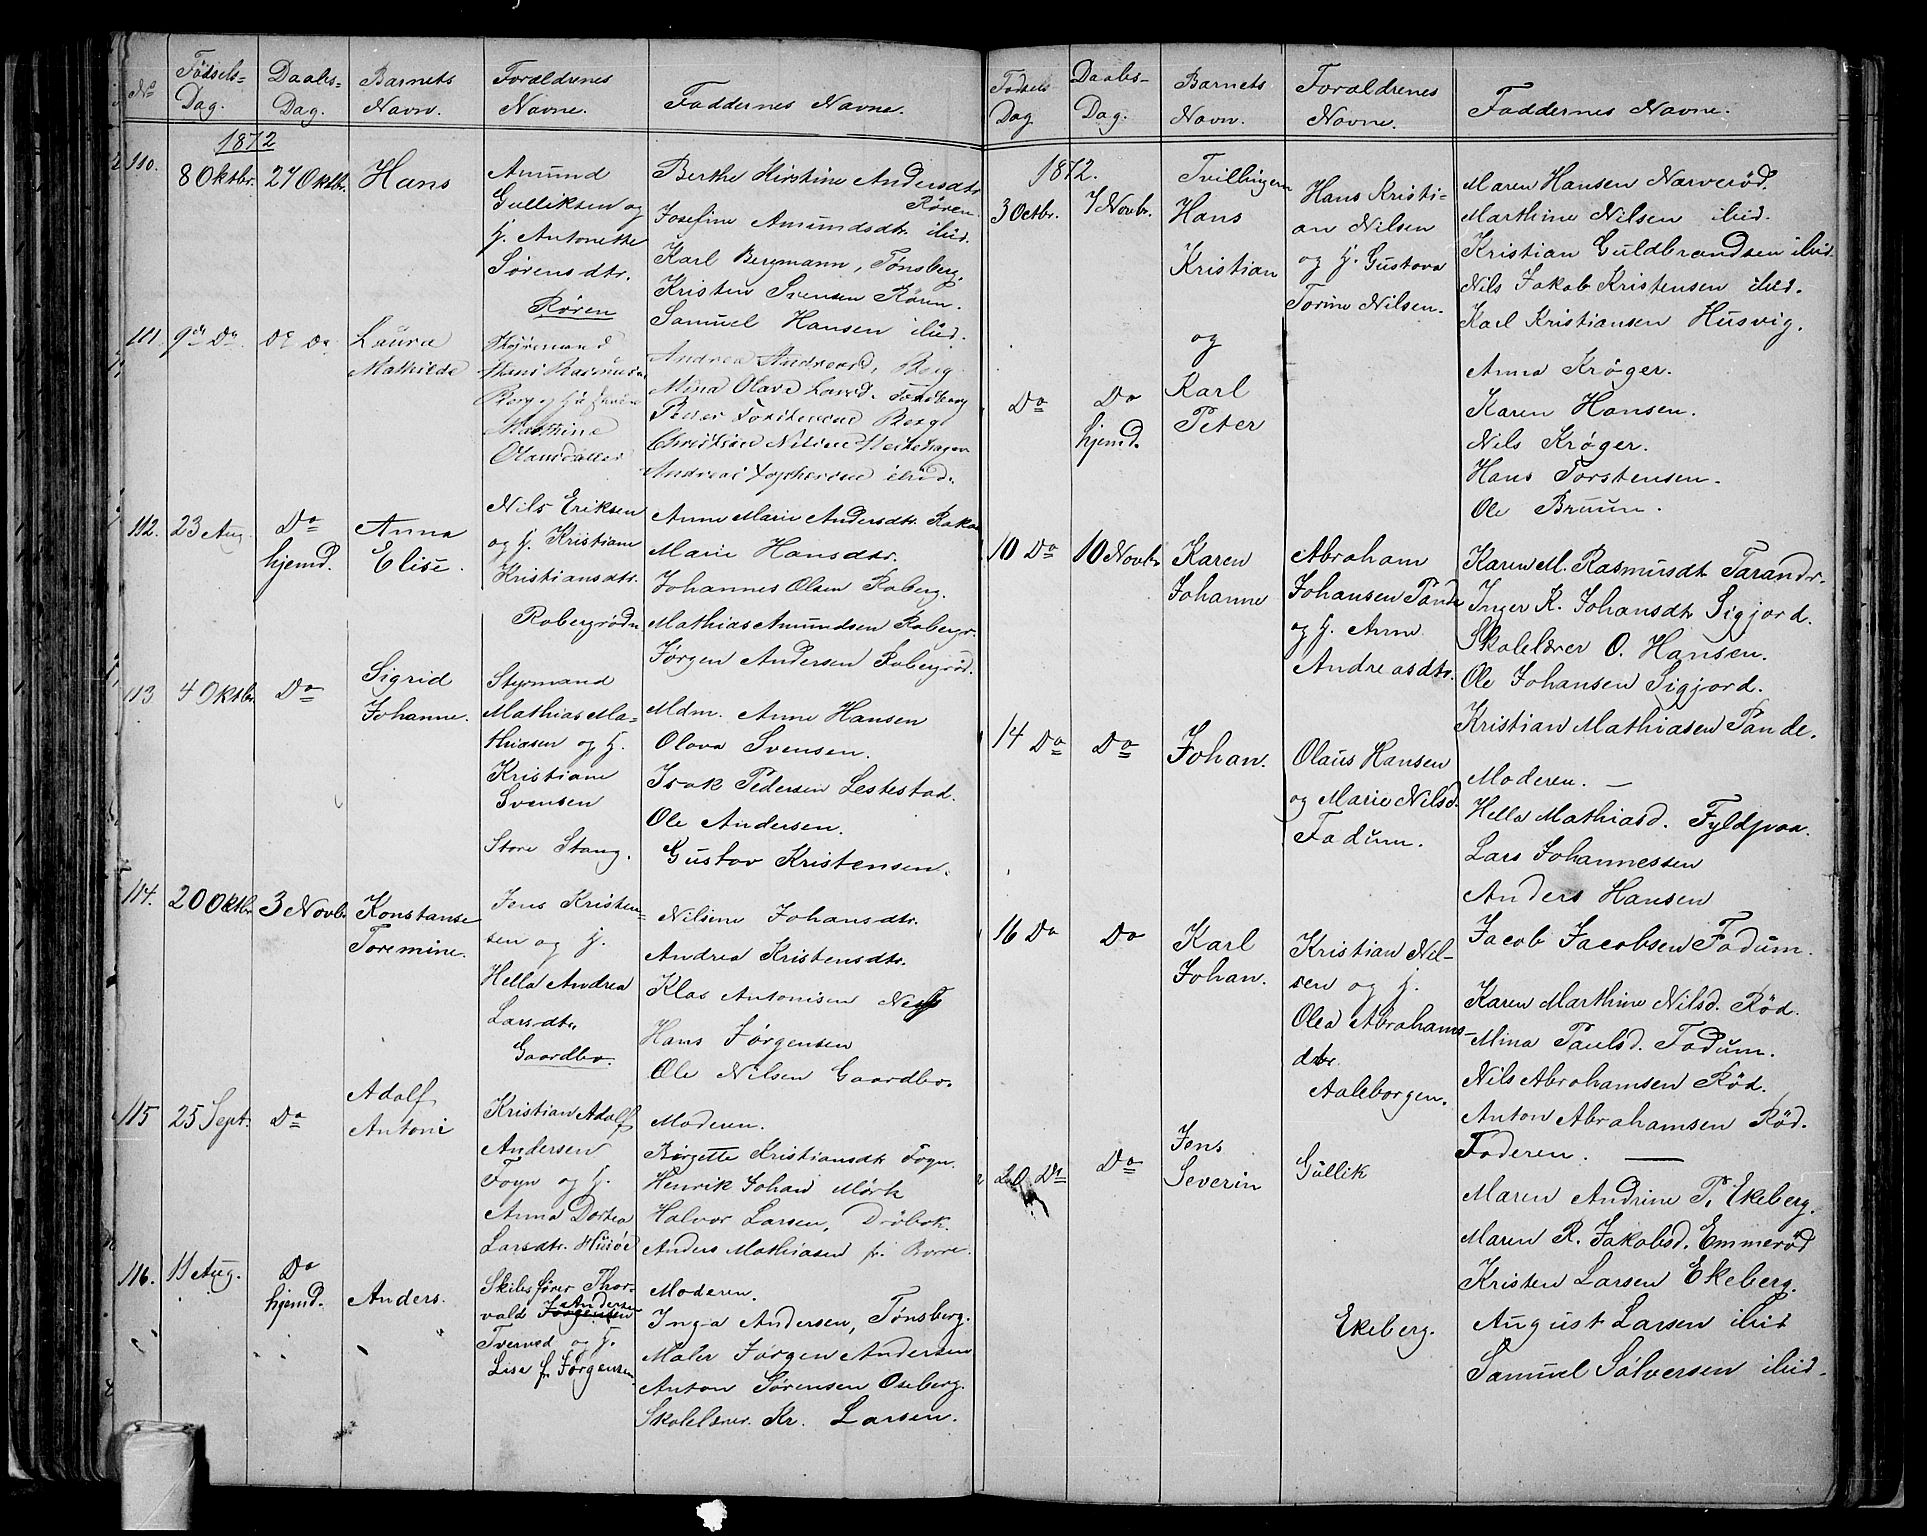 No
Fødsels-
Dag.
Daabs-
Dag.
Barnets
Navn.
Forældrenes
Navne.
Faddernes Navne.
1872
110.
8 Oktbr.
27 Oktbr.
Hans
Amund
Gulliksen og
H. Antonette
Sørensdtr.
Røren
Berthe Kirstine Andersdtr
Røren
Josefine Amundsdtr. ibid.
Karl Bergmann, Tønsberg.
Kristen Svensen Røren.
Samuel Hansen ibid.
111.
9de Do.
De Do.
Laura
Mathilde
Styrmand
Hans Rasmusen
Berg og H.
Mathine
Olausdatter
Andrea Andreasd, Berg
Mina Olava Larsd. Tønsberg
Berg
Christian Nilsen
Andreas ibid.
112.
23 Aug.
Do
hjemd.
Anna
Elise.
Nils Eriksen
og H. Kristiane
Kristiansdtr.
Robergrødn
Anne Marie Andersdtr.
Marie Hansdtr.
Johannes Olsen Roberg.
Mathias Amundsen Robergr.
Jørgen Andersen Robergrød.
113
4 Oktbr.
Do
Sigrid
Johanne.
Styrmand
Mathias Ma-
thiasen og H.
Kristiane
Svensen
Store Stang.
Mdm. Anne Hansen
Olava Svensen.
Isak Pedersen Lestestad.
Ole Andersen.
Gustav Kristensen.
114.
20 Oktbr.
3 Novbr
Konstanse
Toremine.
Jens Kristen-
sen og H.
Hella Andrea
Larsdtr.
Gaardbo.
Nilsine Johansdtr.
Andrea Kristensdtr.
Klas Antonisen Nes
Hans Jørgensen
Ole Nilsen Gaardbo.
115
25 Sept.
Do
Adolf
Antoni
Kristian Adolf
Andersen
Foyn og H.
Anna Dortea
Larsdtr. Husøe
Moderen.
Birgette Kristiansdtr Fogn.
Henrik Johan Mørk
Halvor Larsen, Drøbak.
Anders Mathiasen fr. Borre.
116.
11 Aug.
Do
hjemd.
Anders.
Skibsfører Thor-
vald Jørgensen Andersen
Tverved og H.
Lise f. Jørgensen
Moderen.
Inga Andersen, Tønsberg.
Maler Jørgen Andersen
Anton Sørensen Oseberg.
Skolelærer. Kr. Larsen.
Fødsels
Dag
Daabs-
Dag.
Barnets
Navn.
Forældrenes
Navne.
Faddernes Navne.
1872.
3 Octbr.
7 Novbr.
Tvillingerne
Hans
Kristian
og
Hans Kristi-
an Nilsen
og H. Gustava
Torine Nilsen.
Maren Hansen Narverød.
Marthine Nilsen ibid.
Kristian Guldbrandsen ibid.
Nils Jakob Kristensen ibid.
Karl Kristiansen Husvig.
Do
Do
hjemd.
Karl
Peter
Anna Krøger.
Karen Hansen.
Nils Krøger.
Hans Torstensen.
Ole Bruun.
10 Do
10 Novbr
Karen
Johanne
Abraham
Johansen Pande
og H. Anne
Andreasdtr.
Karen M. Rasmusdtr Tarandr.
Inger K. Johansdtr Sigjord.
Skolelærer O. Hansen.
Ole Johansen Sigjord.
Kristian Mathiasen Pande.
14 Do
Do
Johan.
Olaus Hansen
og Marie Nilsd.
Fadum.
Moderen. —
Hella Mathiasd. Fyldpaa.
Lars Johannessen
Anders Hansen
Jacob Jacobsen Fadum.
16 Do
Do
Karl
Johan.
Kristian Nil-
sen og H.
Olea Abrahams-
dtr.
Aaleborgen.
Karen Marthine Nilsd. Rød.
Mina Paulsd. Fadum.
Nils Abrahamsen Rød.
Anton Abrahamsen Rød.
Faderen. —
20 Do
Do
Jens
Severin
Gullik
Ekeberg.
Maren Andrine P. Ekeberg.
Maren R. Jakobsd. Emmerød
Kristen Larsen Ekeberg.
August Larsen ibid
Samuel Sølversen ibid.